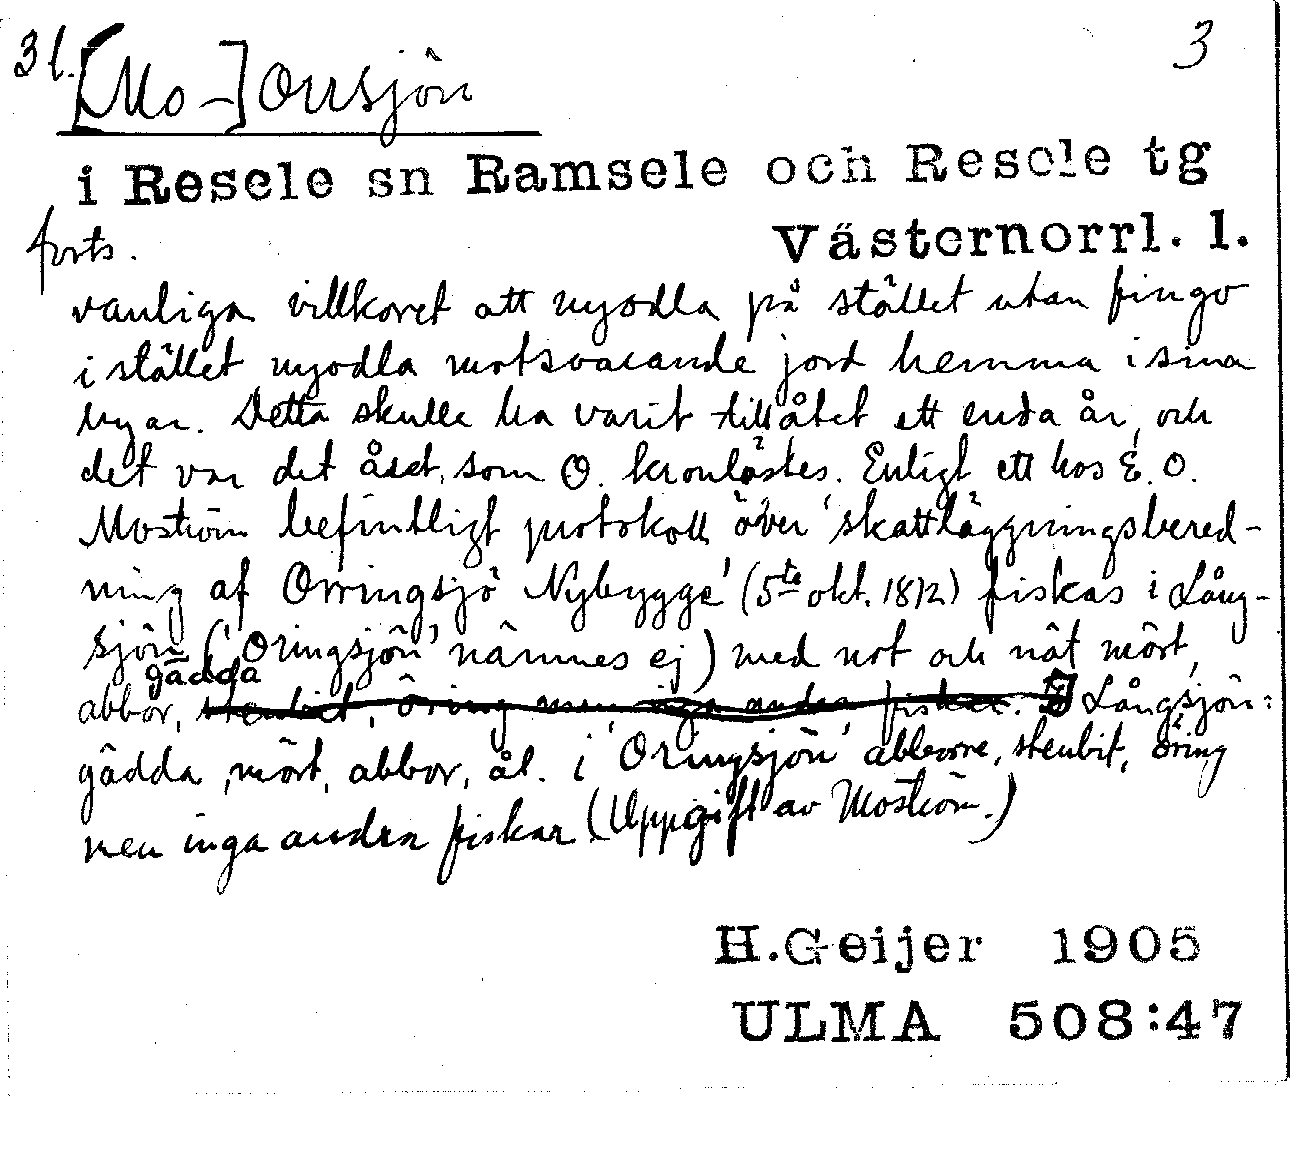 3 l. 3
[Mo-]Orrsjön
i Resele sn Ramsele och Resele tg
forts. Västernorrl. l.
vanliga villkoret att nyodla på stället utan fingo
i stället nyodla motsvarande jord hemma i sina
byar. Detta skulle ha varit tillåtet ett enda år, och
det var det året, som O. kronlöstes. Enligt ett hos E. O.
Moström befintligt protokoll över 'skattläggningsbered-
ning af Orringsjö Nybygge' (5te okt. 1812) fiskas i Lång-
sjön ('Oringsjön' nämnes ej) med not och nät mört,
gädda
abbor, stenbit, öring men inga andra fiskar. I Långsjön:
gädda, mört, abbor, ål. i 'Oringsjön' abborre, stenbit, öring
men inga andra fiskar (Uppgift av Moström.)
H.Geijer 1905
ULMA 508:47